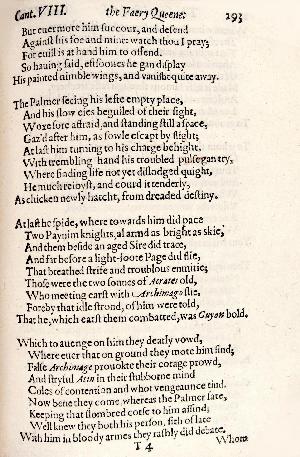 Cant. VIII. the Faery Queene. 293
But euermore him succour, and defend
Against his foe and mine: watch thou I pray;
For euill is at hand him to offend.
So hauing said, eftsoones he gan display
His painted nimble wings, and vanisht quite away.
The Palmer seeing his lefte empty place,
And his slow eies beguiled of their sight,
Woxe sore affraid, and standing still a space,
Gaz'd after him, as fowle escapt by flight;
At last him turning to his charge behight,
With trembling hand his troubled pulse gan try,
Where finding life not yet dislodged quight,
He much reioyst, and courd it tenderly,
As chicken newly hatcht, from dreaded destiny.
At last he spide, where towards him did pace
Two Paynim knights, al armd as bright as skie,
And them beside an aged Sire did trace,
And far before a light-foote Page did flie,
That breathed strife and troublous enmitie;
Those were the two sonnes of Acrates old,
Who meeting earst with Archimago slie,
Foreby that idle strond, of him were told,
That he, which earst them combatted, was Guyon bold.
Which to auenge on him they dearly vowd,
Where euer that on ground they mote him find;
False Archimage prouokte their corage prowd,
And stryful Atin in their stubborne mind
Coles of contention and whot vengeaunce tind.
Now bene they come, whereas the Palmer sate,
Keeping that slombred corse to him assind;
Well knew they both his person, sith of late
With him in bloody armes they rashly did debate.
T 4 Whom